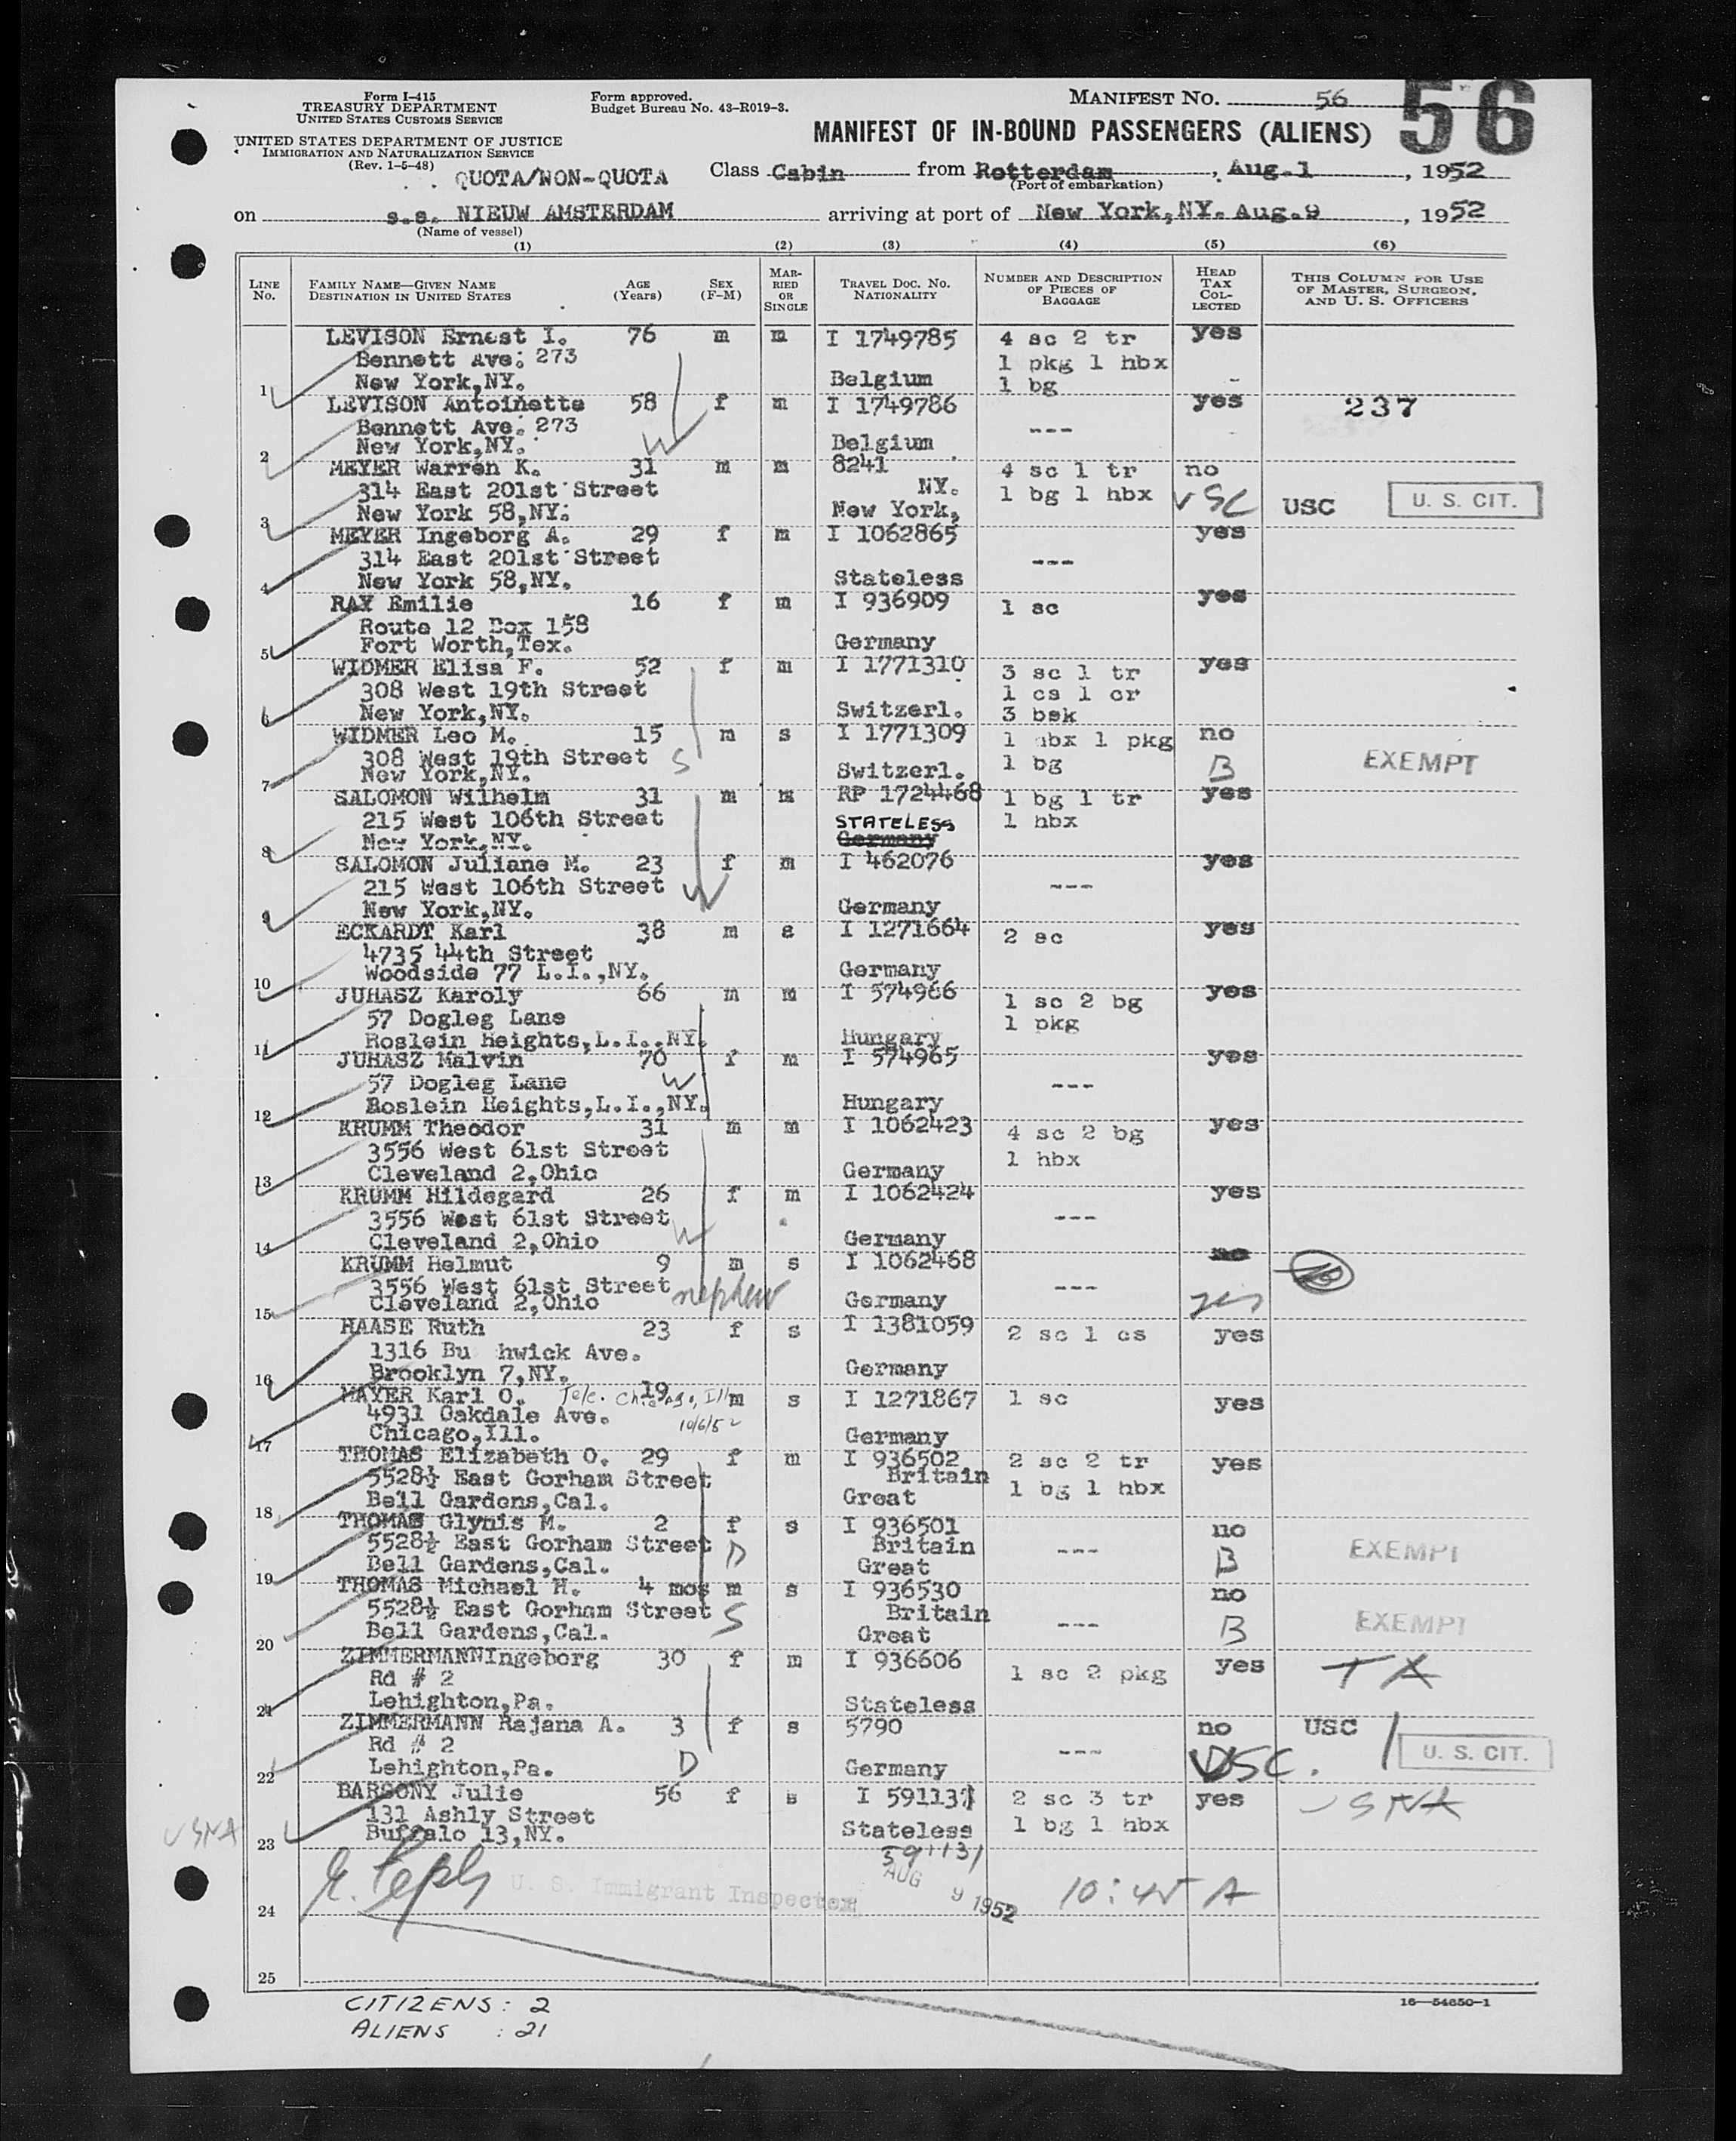 Form I-415
TREASURY DEPARTMENT
UNITED STATES CUSTOMS SERVICE
Form approved.
Budget Bureau No. 43-R019-3.
MANIFEST NO. 56
56
UNITED STATES DEPARTMENT OF JUSTICE
IMMIGRATION AND NATURALIZATION SERVICE
(Rev. 1-5-48)
MANIFEST OF IN-BOUND PASSENGERS (ALIENS)
QUOTA/NON-QUOTA
Class Cabin from Rotterdam, Aug.1, 1952
(Port of embarkation)
on s.s. NIEUW AMSTERDAM arriving at port of New York,NY. Aug.9, 1952
(Name of vessel)
(1) (2) (3) (4) (5) (6)
LINE No. FAMILY NAME—GIVEN NAME DESTINATION IN UNITED STATES AGE (Years) SEX (F-M) MARRIED OR SINGLE TRAVEL DOC. NO. NATIONALITY NUMBER AND DESCRIPTION OF PIECES OF BAGGAGE HEAD TAX COLLECTED THIS COLUMN FOR USE OF MASTER, SURGEON, AND U. S. OFFICERS
LEVISON Ernest I. 76 m m I 1749785 4 sc 2 tr yes
Bennett Ave. 273 1 pkg 1 hbx
1 New York,NY. Belgium 1 bg -
LEVISON Antoinette 58 f m I 1749786 yes 237
Bennett Ave. 273 ---
2 New York,NY. W Belgium -
MEYER Warren K. 31 m m 8241 4 sc 1 tr no
314 East 201st Street NY. 1 bg 1 hbx VSC USC U. S. CIT.
3 New York 58,NY. New York,
MEYER Ingeborg A. 29 f m I 1062865 yes
314 East 201st Street ---
4 New York 58,NY. Stateless
RAY Emilie 16 f m I 936909 1 sc yes
Route 12 Box 158
5 Fort Worth,Tex. Germany
WIDMER Elisa F. 52 f m I 1771310 3 sc 1 tr yes
308 West 19th Street 1 cs 1 cr
6 New York,NY. Switzerl. 3 bsk
WIDMER Leo M. 15 m s I 1771309 1 hbx 1 pkg no
308 West 19th Street S 1 bg B EXEMPT
7 New York,NY. Switzerl.
SALOMON Wilhelm 31 m m RP 1724468 1 bg 1 tr yes
215 West 106th Street STATELESS 1 hbx
8 New York,NY. Germany
SALOMON Juliane M. 23 f m I 462076 yes
215 West 106th Street W ---
9 New York,NY. Germany
ECKARDT Karl 38 m s I 1271664 2 sc yes
4735 44th Street
10 Woodside 77 L.I.,NY. Germany
JUHASZ Karoly 66 m m I 574966 1 sc 2 bg yes
57 Dogleg Lane 1 pkg
11 Roslein Heights,L.I.,NY. Hungary
JUHASZ Malvin 70 f m I 574965 yes
57 Dogleg Lane W ---
12 Roslein Heights,L.I.,NY. Hungary
KRUMM Theodor 31 m m I 1062423 4 sc 2 bg yes
3556 West 61st Street 1 hbx
13 Cleveland 2,Ohio Germany
KRUMM Hildegard 26 f m I 1062424 yes
3556 West 61st Street W ---
14 Cleveland 2,Ohio Germany
KRUMM Helmut 9 m s I 1062468 no
3556 West 61st Street nephew ---
15 Cleveland 2,Ohio Germany yes
HAASE Ruth 23 f s I 1381059 2 sc 1 cs yes
1316 Bu hwick Ave.
16 Brooklyn 7,NY. Germany
MAYER Karl O. Tele. Chicago, Ill 19 m s I 1271867 1 sc yes
4931 Oakdale Ave. 10/6/52
17 Chicago,Ill. Germany
THOMAS Elizabeth O. 29 f m I 936502 2 sc 2 tr yes
5528½ East Gorham Street Britain 1 bg 1 hbx
18 Bell Gardens,Cal. Great
THOMAS Glynis M. 2 f s I 936501 no
5528½ East Gorham Street D Britain --- B EXEMPT
19 Bell Gardens,Cal. Great
THOMAS Michael H. 4 mos m s I 936530 no
5528½ East Gorham Street S Britain --- B EXEMPT
20 Bell Gardens,Cal. Great
ZIMMERMANNIngeborg 30 f m I 936606 1 sc 2 pkg yes TA
Rd # 2
21 Lehighton,Pa. Stateless
ZIMMERMANN Rajana A. 3 f s 5790 no USC
Rd # 2 --- U. S. CIT.
22 Lehighton,Pa. D Germany USC.
BARSONY Julie 56 f s I 591131 2 sc 3 tr yes SNA
131 Ashly Street 1 bg 1 hbx
23 Buffalo 13,NY. Stateless
SNA
591131
U. S. Immigrant Inspector AUG 9 1952 10:45 A
24
25
16—54650-1
CITIZENS: 2
ALIENS : 21